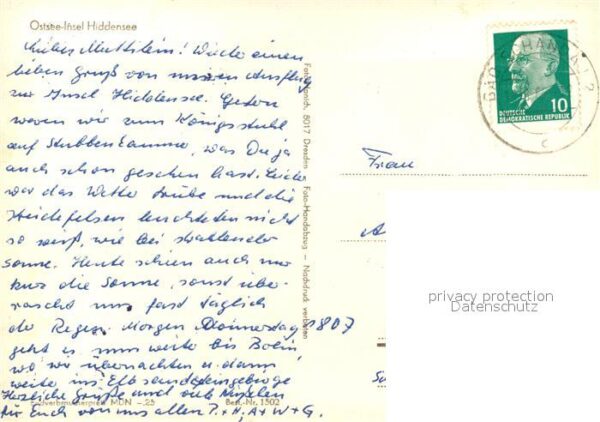 Ostsee-Insel Hiddensee
Liebes Muttilein! Wieder einen
lieben Gruß von unserem Ausflug
zur Insel Hiddensee. Gestern
waren wir zum Königsstuhl
auf Stubbenkammer, was Du ja
auch schon gesehen hast. Leider
war das Wetter trübe und die
Kreidefelsen leuchteten nicht
so weiß, wie bei strahlender
Sonne. Heute schien auch nur
kurz die Sonne, sonst über-
rascht uns fast täglich
der Regen. Morgen Donnerstag
geht es nun weiter bis Berlin,
wo wir übernachten u. dann
weiter ins Elbsandsteingebirge
Herzliche Grüße und viele
für Euch von uns allen + H, A + W + G.
Endverbraucherpreis MDN -,25 Best.-Nr. 1502
8017 Dresden Foto-Handabzug — Nachdruck verboten
1807
DEUTSCHE
DEMOKRATISCHE REPUBLIK
10
c
Frau
privacy protection
Datenschutz